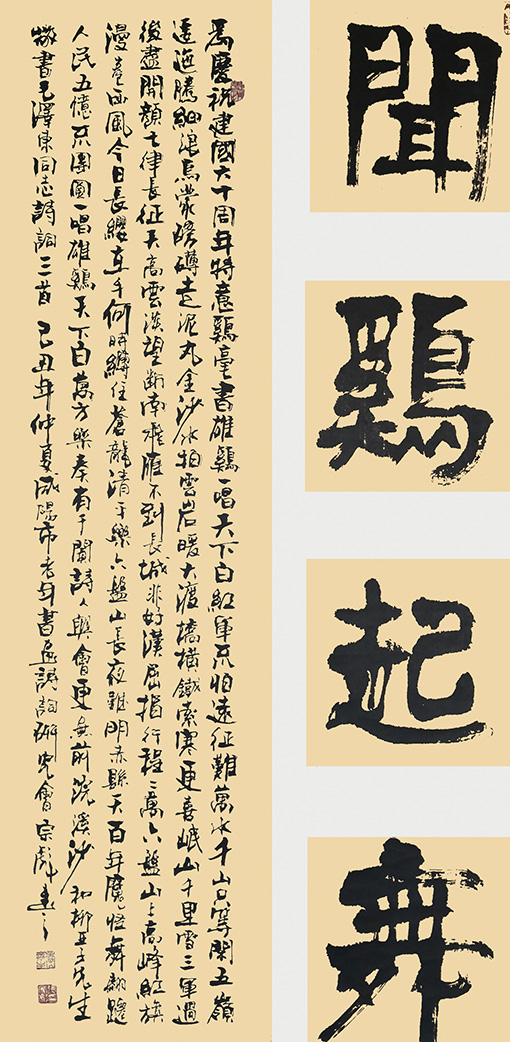 聞鷄起舞
為慶祝建國六十周年特意鷄毫書雄鷄一唱天下白紅軍不怕遠征難萬水千山只等閑五嶺
逶迤騰細浪烏蒙磅礴走泥丸金沙水拍雲岩暖大渡橋橫鐵索寒更喜岷山千里雪三軍過
後盡開顏七律長征天高雲淡望斷南飛雁不到長城非好漢屈指行程二萬六盤山上高峰紅旗
漫卷西風今日長纓在手何時縛住蒼龍清平樂六盤山長夜難明赤縣天百年魔怪舞翩躚
人民五億不團圓一唱雄鷄天下白萬方樂奏有于闐詩人興會更無前浣溪沙和柳亞子先生
敬書毛澤東同志詩詞三首 己丑年仲夏咸陽市老年書畫詩詞研究會宗彪書